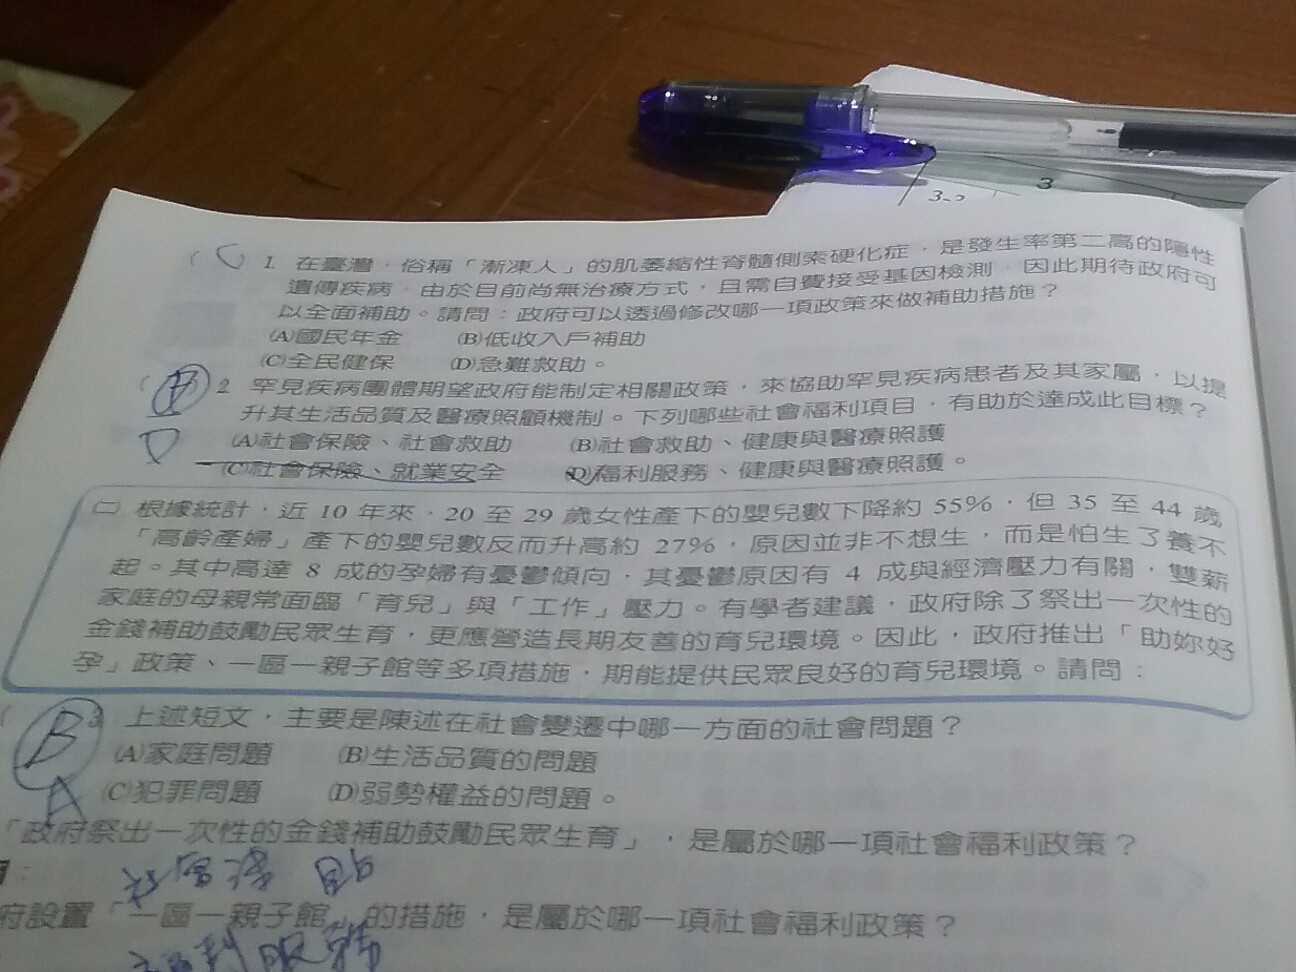 3
3-2
( C ) 1. 在臺灣，俗稱「漸凍人」的肌萎縮性脊髓側索硬化症，是發生率第二高的隱性
遺傳疾病，由於目前尚無治療方式，且需自費接受基因檢測，因此期待政府可
以全面補助。請問：政府可以透過修改哪一項政策來做補助措施？
(A)國民年金 (B)低收入戶補助
(C)全民健保 (D)急難救助。
( 2 罕見疾病團體期望政府能制定相關政策，來協助罕見疾病患者及其家屬，以提
升其生活品質及醫療照顧機制。下列哪些社會福利項目，有助於達成此目標？
D (A)社會保險、社會救助 (B)社會救助、健康與醫療照護
(C)社會保險、就業安全 (D)福利服務、健康與醫療照護。
㈡ 根據統計，近 10 年來，20 至 29 歲女性產下的嬰兒數下降約 55%，但 35 至 44 歲
「高齡產婦」產下的嬰兒數反而升高約 27%，原因並非不想生，而是怕生了養不
起。其中高達 8 成的孕婦有憂鬱傾向，其憂鬱原因有 4 成與經濟壓力有關，雙薪
家庭的母親常面臨「育兒」與「工作」壓力。有學者建議，政府除了祭出一次性的
金錢補助鼓勵民眾生育，更應營造長期友善的育兒環境。因此，政府推出「助妳好
孕」政策、一區一親子館等多項措施，期能提供民眾良好的育兒環境。請問：
( B 3 上述短文，主要是陳述在社會變遷中哪一方面的社會問題？
(A)家庭問題 (B)生活品質的問題
A (C)犯罪問題 (D)弱勢權益的問題。
「政府祭出一次性的金錢補助鼓勵民眾生育」，是屬於哪一項社會福利政策？
社會津貼
府設置「一區一親子館」的措施，是屬於哪一項社會福利政策？
福利服務